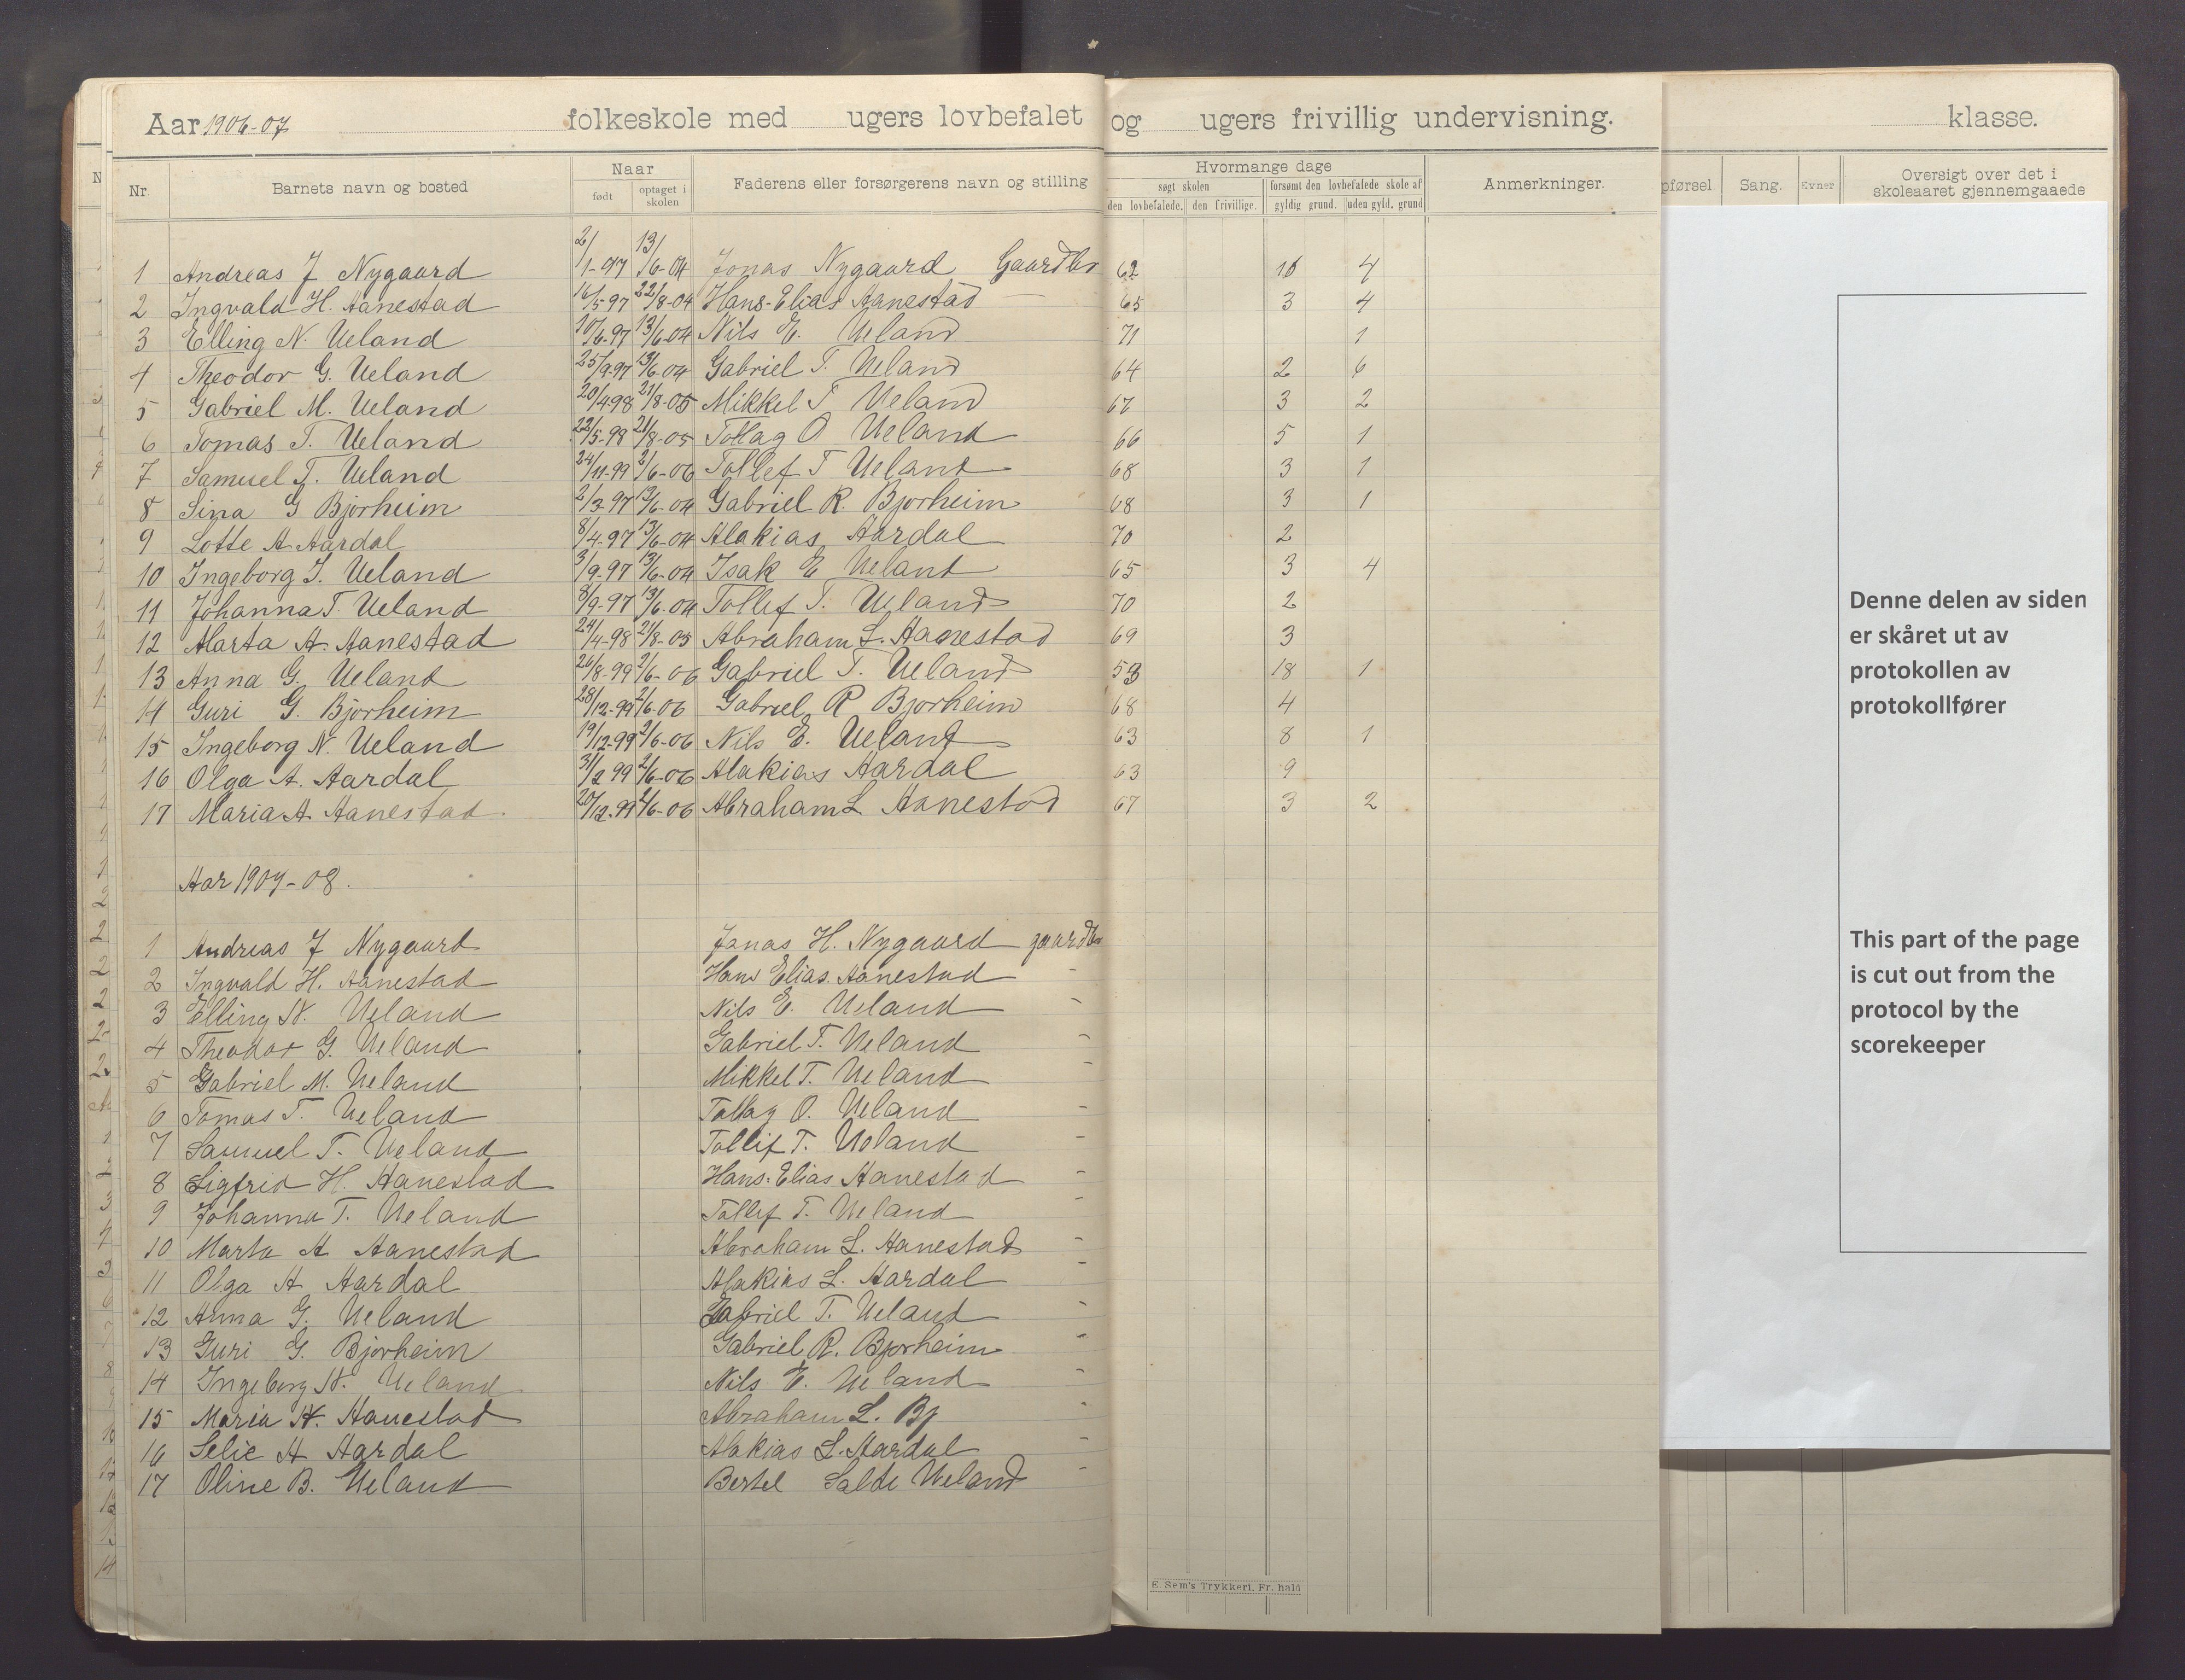 Aar 1906-07 folkeskole med ugers lovbefalet og ugers frivillig undervisning. klasse.
Nr. Barnets navn og bosted Naar født optaget i skolen Faderens eller forsørgerens navn og stilling Hvormange dage søgt skolen den lovbefalede. den frivillige. forsømt den lovbefalede skole af gyldig grund. uden gyld. grund Anmerkninger. pførsel. Sang. Evner Oversigt over det i skoleaaret gjennemgaaede
1 Andreas J Nygaard 2/1-97 13/6-04 Jonas Nygaard Gaardbr 62 4
2 Ingvald H. Aanestad 16/5 97 22/8-04 Hans-Elias Aanestad — 65 3 4
3 Elling N. Ueland 10/6-97 13/6-04 Nils E. Ueland 71 1
4 Theodor G. Ueland 25/9-97 13/6-04 Gabriel T. Ueland 64 2 6
5 Gabriel M. Ueland 20/4-98 21/8-05 Mikkel T Ueland 67 3 2
6 Tomas T. Ueland 22/5-98 21/8-05 Tollag O Ueland 66 5 1
7 Samuel T. Ueland 24/11-99 2/6-06 Tollef T Ueland 68 3 1
8 Sina G Bjorheim 2/3-97 13/6-04 Gabriel R. Bjorheim 68 3 1
9 Lotte A Aardal 8/4-97 13/6-04 Alakias Aardal 70 2
10 Ingeborg I. Ueland 3/9-97 13/6-04 Isak E Ueland 65 3 4
11 Johanna T. Ueland 8/9-97 13/6-04 Tollef T. Ueland 70 2
12 Marta A. Aanestad 24/4-98 21/8-05 Abraham L. Aanestad 69 3
13 Anna G. Ueland 26/8-99 2/6-06 Gabriel T. Ueland 53 18 1
14 Guri G. Bjorheim 28/12-99 2/6-06 Gabriel R Bjorheim 68 4
15 Ingeborg N. Ueland 19/12-99 2/6-06 Nils E. Ueland 63 8 1
16 Olga A. Aardal 99 2/6-06 Alakias Aardal 63 9
17 Maria A Aanestad 20/12-99 2/6-06 Abraham L Aanestad 67 3 2
Aar 1907-08.
1 Andreas J Nygaard Jonas H. Nygaard gaardbr
2 Ingvald H. Aanestad Hans Elias Aanestad -
3 Elling N. Ueland Nils E. Ueland -
4 Theodor G. Ueland Gabriel T. Ueland -
5 Gabriel M. Ueland Mikkel T. Ueland -
6 Tomas T. Ueland Tollag O. Ueland -
7 Samuel T. Ueland Tollef T. Ueland -
8 Sigfrid H. Aanestad Hans-Elias Aanestad -
9 Johanna T. Ueland Tollef T. Ueland -
10 Marta A Aanestad Abraham L. Aanestad -
11 Olga A Aardal Alakias L. Aardal -
12 Anna G. Ueland Gabriel T. Ueland -
13 Guri G. Bjorheim Gabriel R. Bjorheim -
14 Ingeborg N. Ueland Nils E. Ueland -
15 Maria A. Aanestad Abraham L. Bj -
16 Selie A Aardal Alakias L. Aardal -
17 Oline B. Ueland Bertel Salde Ueland -
E. Sem's Trykkeri, Fr. hald
Denne delen av siden
er skåret ut av
protokollen av
protokollfører
This part of the page
is cut out from the
protocol by the
scorekeeper